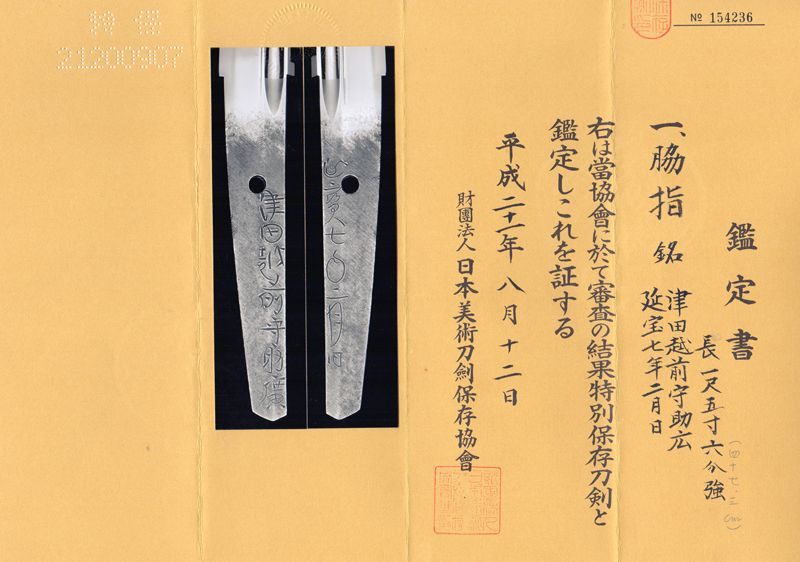 特保
21200907
№ 154236
鑑定書
一、脇指 銘 津田越前守助広
延宝七年二月日
長 一尺五寸六分強
(四十七.三cm)
右は當協會に於て審査の結果特別保存刀剣と
鑑定しこれを証する
平成二十一年八月十二日
財團法人 日本美術刀劍保存協會
延寶七〇二月日
津田越前守助廣